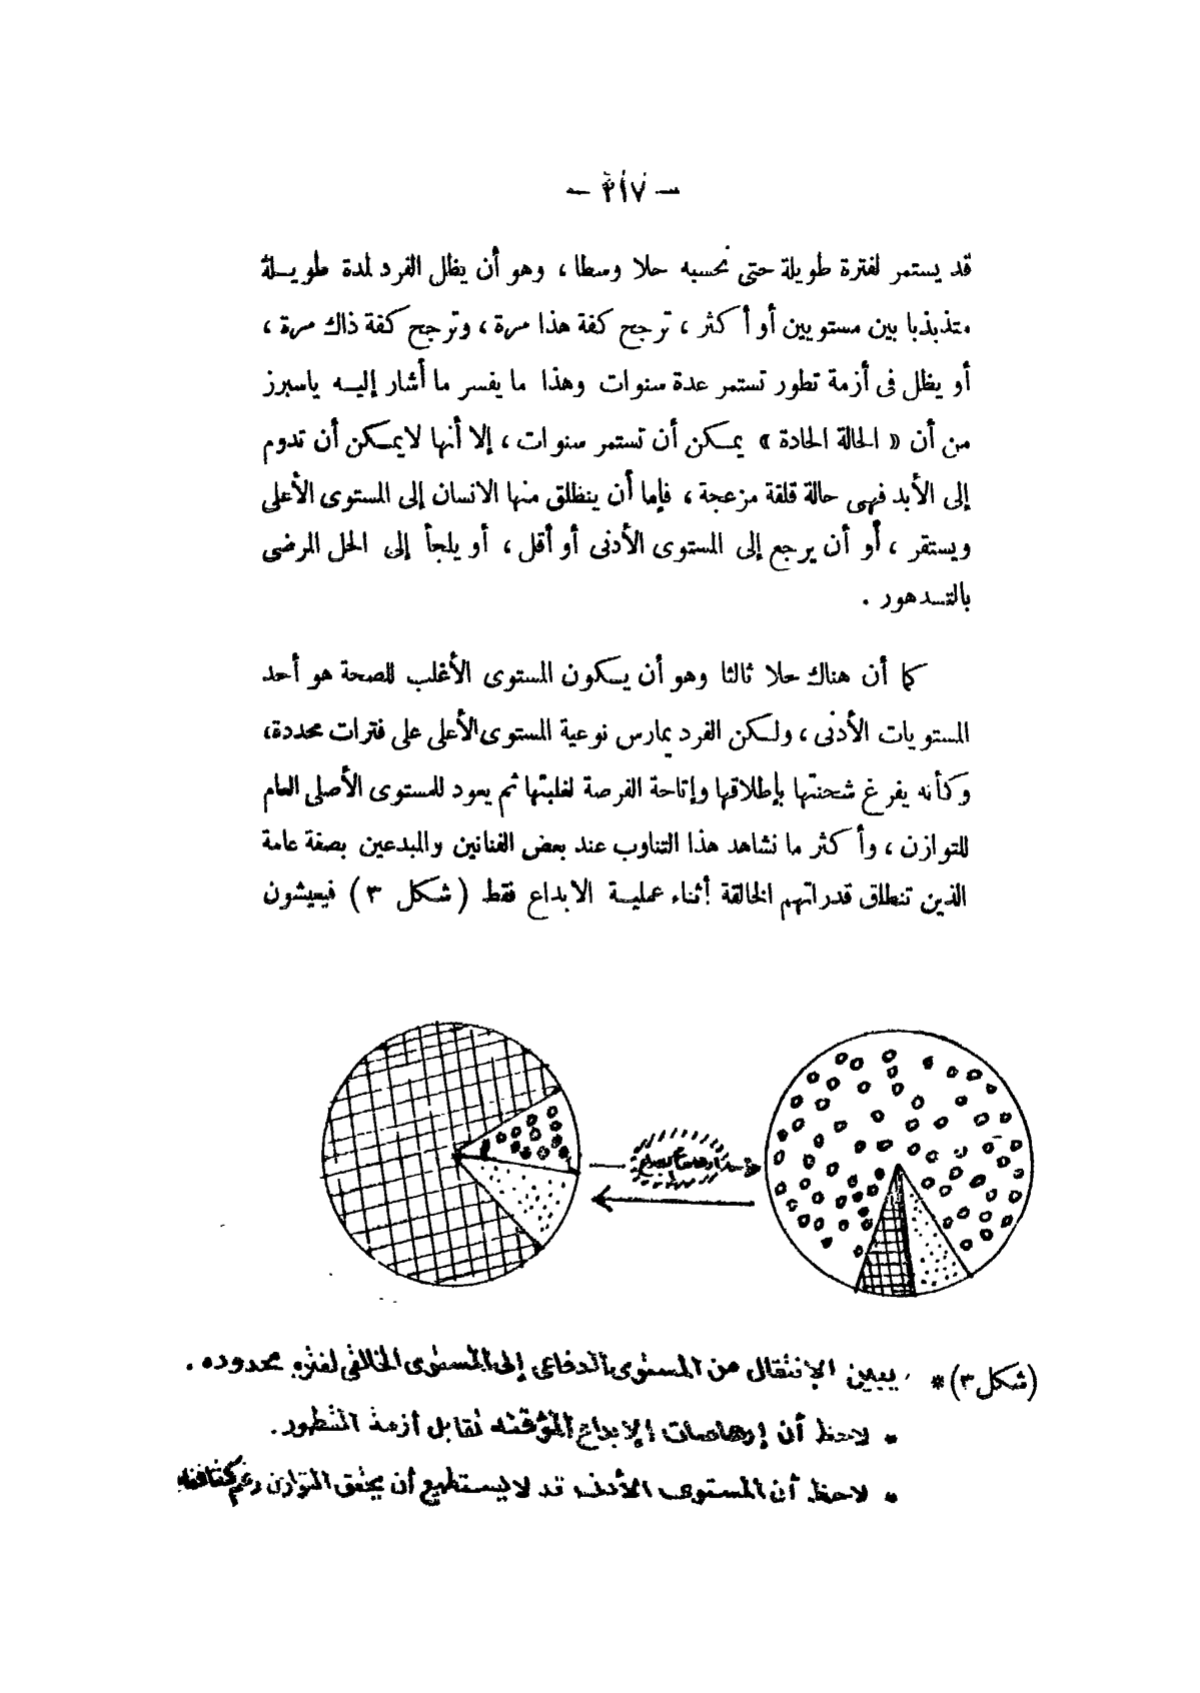 — ٢١٧ —
قد يستمر لفترة طويلة حتى نحسبه حلا وسطا ، وهو أن يظل الفرد لمدة طويـلة
متذبذبا بين مستويين أو أكثر ، ترجح كفة هذا مرة ، وترجح كفة ذاك مرة ،
أو يظل فى أزمة تطور تستمر عدة سنوات وهذا ما يفسر ما أشار إليـه ياسبرز
من أن « الحالة الحادة » يمـكن أن تستمر سنوات ، إلا أنها لايمـكن أن تدوم
إلى الأبد فهى حالة قلقة مزعجة ، فإما أن ينطلق منها الانسان إلى المستوى الأعلى
ويستقر ، أو أن يرجع إلى المستوى الأدنى أو أقل ، أو يلجأ إلى الحل المرضى
بالتـدهور .
كما أن هناك حلا ثالثا وهو أن يـكون المستوى الأغلب للصحة هو أحد
المستويات الأدنى ، ولـكن الفرد يمارس نوعية المستوى الأعلى على فترات محددة،
وكأنه يفرغ شحنتها بإطلاقها وإتاحة الفرصة لغلبتها ثم يعود للمستوى الأصلى العام
للتوازن ، وأكثر ما نشاهد هذا التناوب عند بعض الفنانين والمبدعين بصفة عامة
الذين تنطلق قدراتهم الخالقة أثناء عمليـة الابداع فقط ( شكل ٣ ) فيعيشون
(شكل ٣) * يبين الإنتقال من المستوى الدفاعى إلى المستوى الخالقى لفتره محدوده .
* لاحظ أن إرهاصات الإبداع المؤقته تقابل أزمة التطور .
* لاحظ أن المستوى الأدنى قد لا يستطيع أن يحقق التوازن رغم كثافته